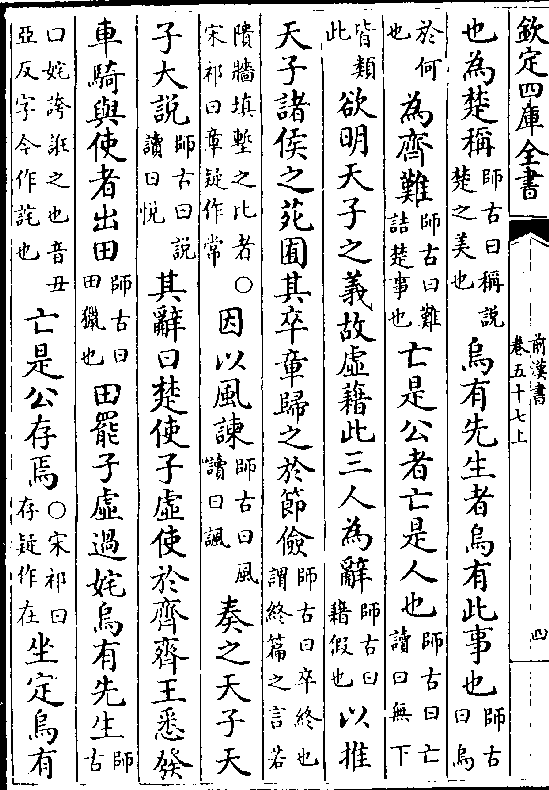 欽定四庫全書
前漢書
卷五十七上
四
也為楚稱師古曰稱說楚之美也烏有先生者烏有此事也師古曰烏
於何也為齊難師古曰難詰楚事也亡是公者亡是人也師古曰亡讀曰無下
皆類此欲明天子之義故虛藉此三人為辭師古曰藉假也以推
天子諸侯之苑囿其卒章歸之於節儉師古曰卒終也謂終篇之言若
隤牆填塹之比者○宋祁曰章疑作常因以風諫師古曰風讀曰諷奏之天子天
子大說師古曰說讀曰悅其辭曰楚使子虛使於齊齊王悉發
車騎與使者出田師古曰田獵也田罷子虛過姹烏有先生師古
曰姹誇誑之也音丑亞反字今作詫也亡是公存焉○宋祁曰存疑作在坐定烏有